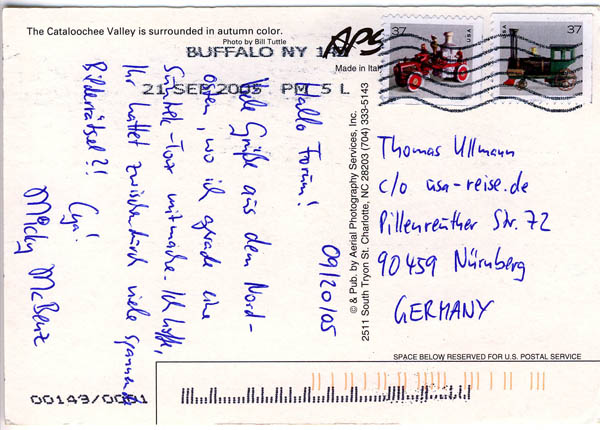 The Cataloochee Valley is surrounded in autumn color.
Photo by Bill Tuttle
BUFFALO NY
21 SEP 2005 PM 5 L
APS
Made in Italy
37
USA
37
USA
09/20/05
Hallo Forum!
Viel Grüße aus dem Nord-
osten, wo ich gerade eine
Städte-Tour mitmache. Ich hoffe,
Ihr hattet zwischendurch viele spannende
Bilderrätsel?!
Cya!
Micky McBenz
© & Pub. by Aerial Photography Services, Inc.
2511 South Tryon St. Charlotte, NC 28203 (704) 333-5143
Thomas Ullmann
c/o usa-reise.de
Pillenreuther Str. 72
90459 Nürnberg
GERMANY
SPACE BELOW RESERVED FOR U.S. POSTAL SERVICE
00143/0001